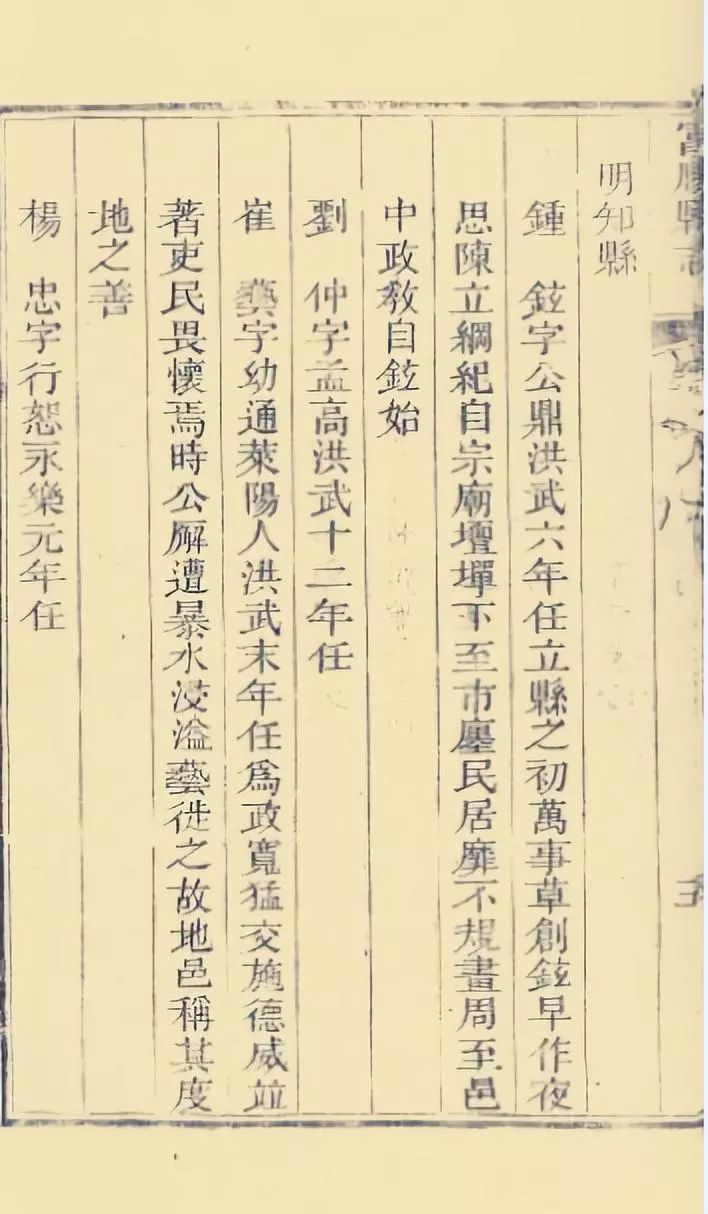 富順縣志
明知縣
鍾 鉉字公鼎洪武六年任立縣之初萬事草創鉉早作夜
思陳立綱紀自宗廟壇墠下至市廛民居靡不規畫周至邑
中政教自鉉始
劉 仲字孟高洪武十二年任
崔 藝字幼通萊陽人洪武末年任爲政寬猛交施德威竝
著吏民畏懷焉時公廨遭暴水浸溢藝徙之故地邑稱其度
地之善
楊 忠字行恕永樂元年任